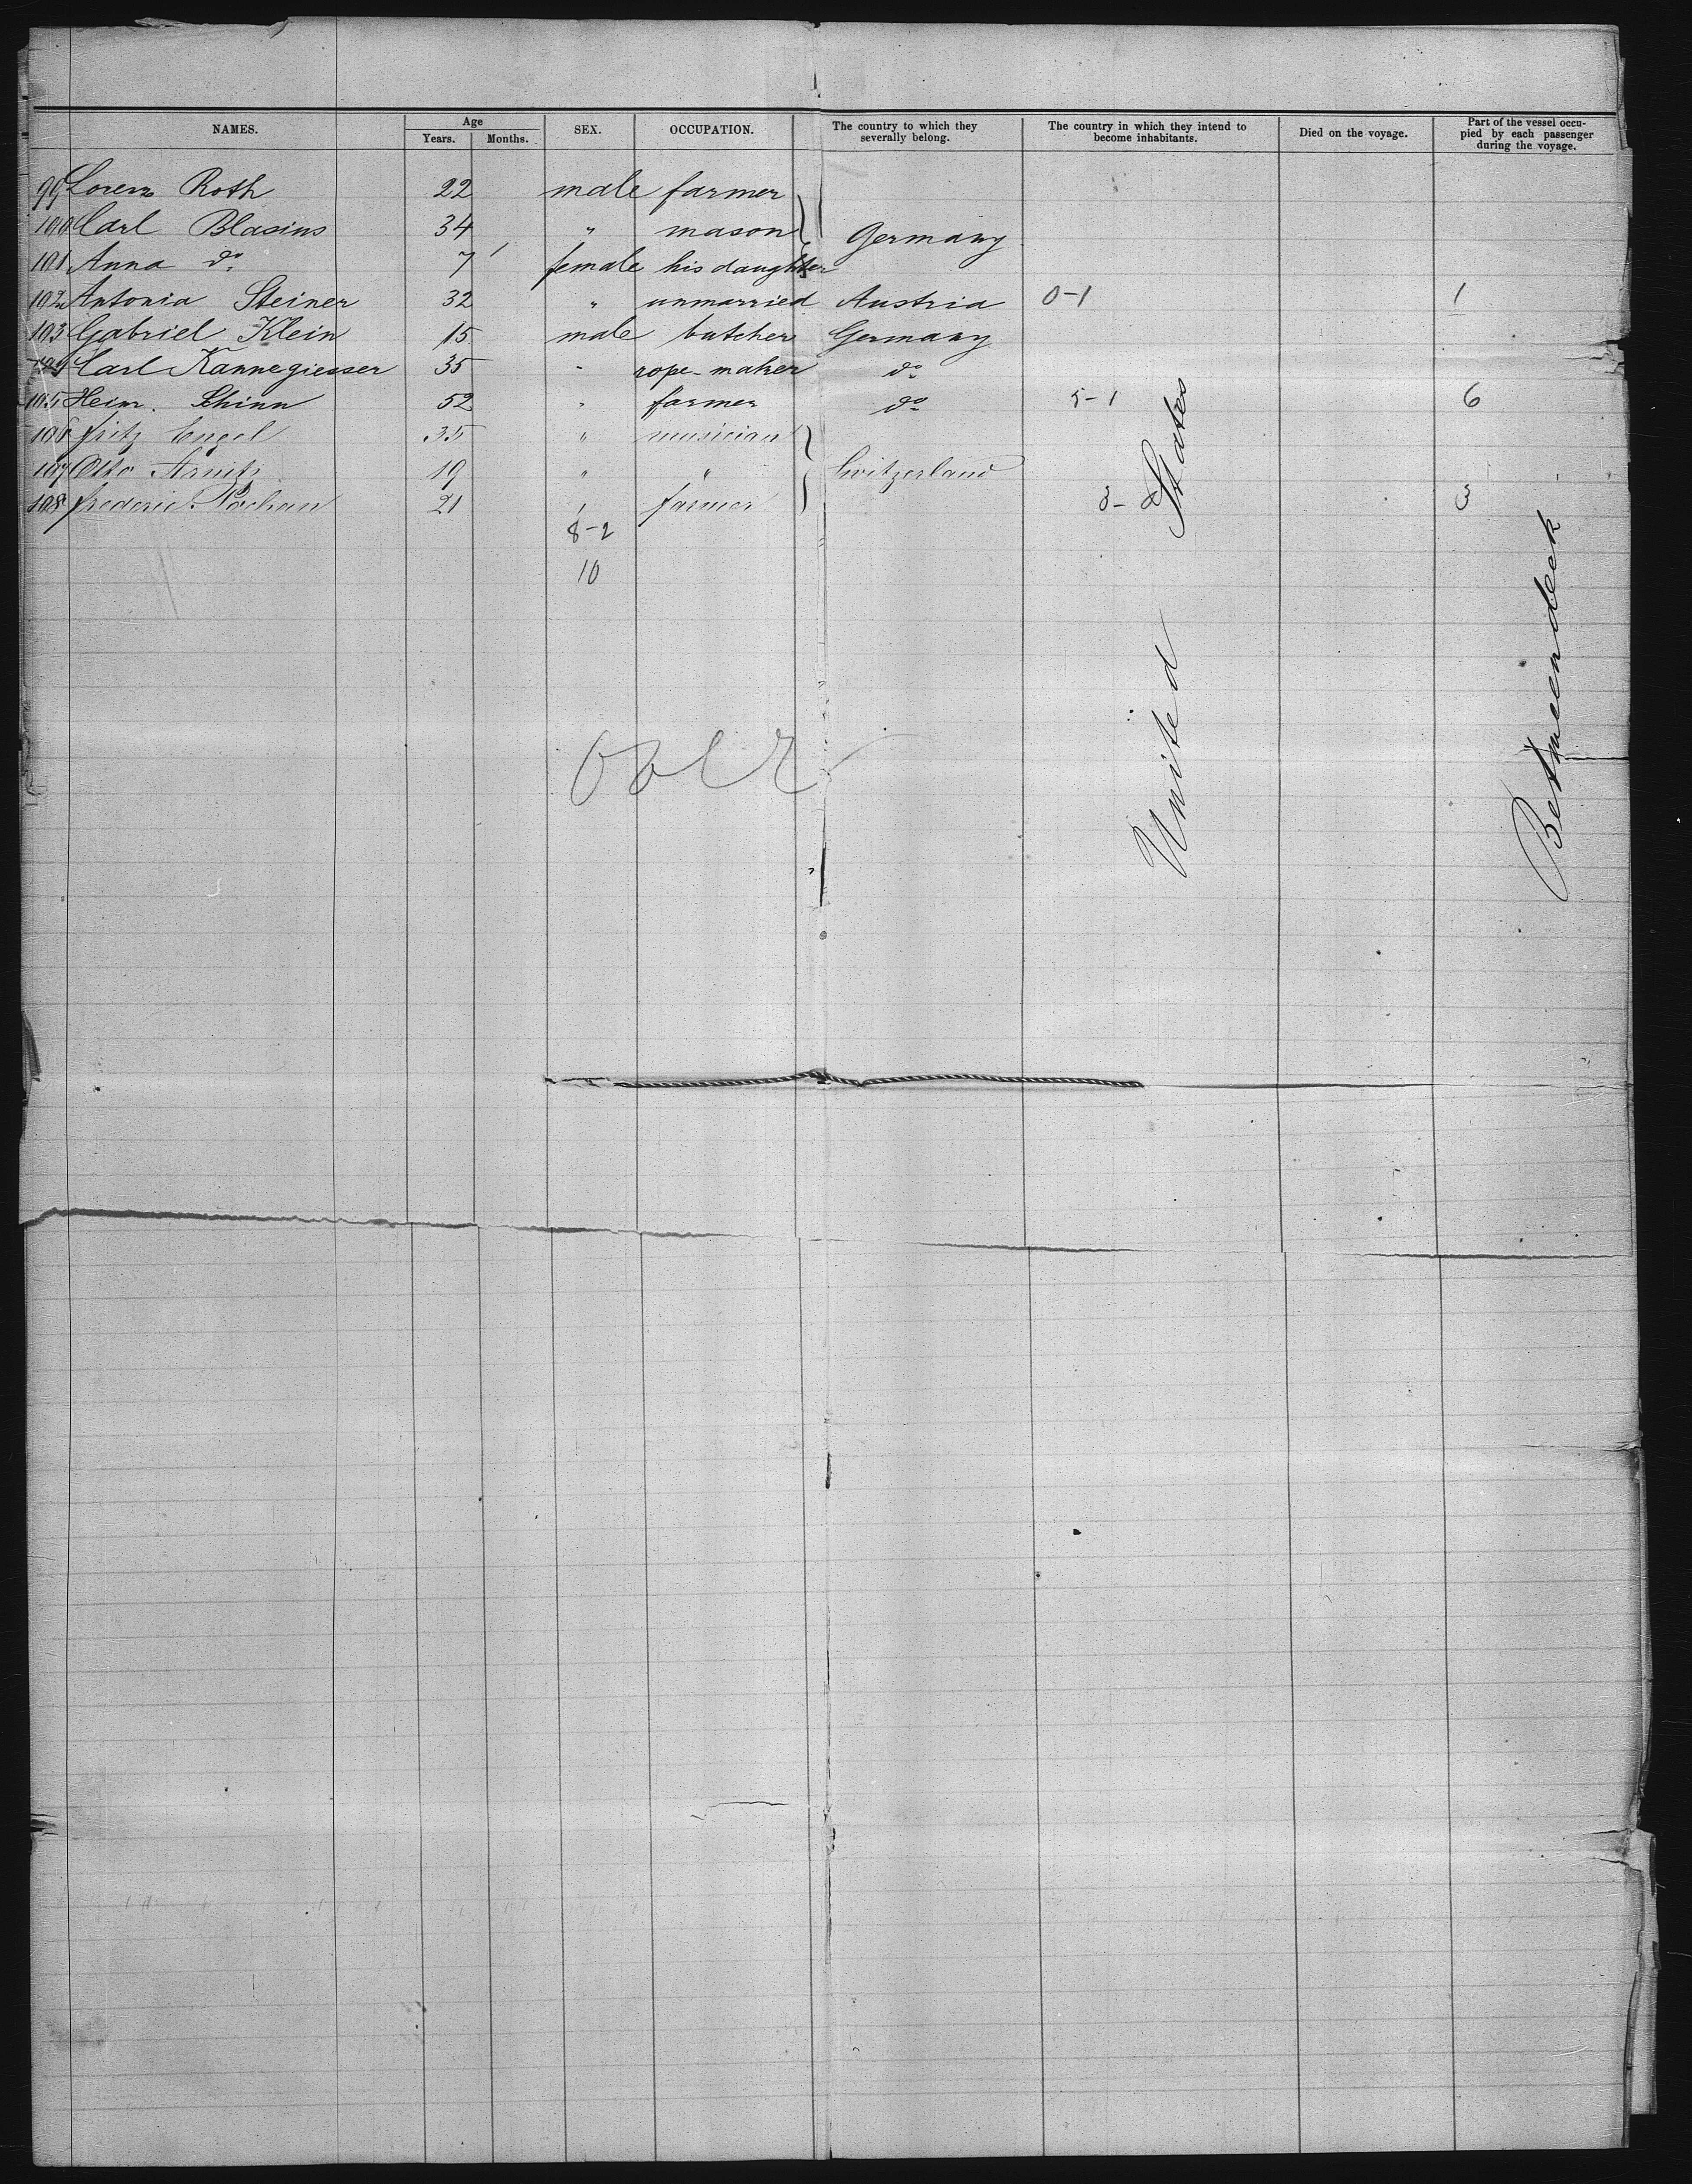 NAMES. Age Years. Months. SEX. OCCUPATION. The country to which they severally belong. The country in which they intend to become inhabitants. Died on the voyage. Part of the vessel occupied by each passenger during the voyage.
99 Lorenz Roth 22 male farmer
100 Carl Blasius 34 " mason Germany
101 Anna do 7 female his daughter
102 Antonia Steiner 32 " unmarried Austria 0-1 1
103 Gabriel Klein 15 male butcher Germany
104 Carl Kannegiesser 35 " rope-maker do
105 Heinr. Schinn 52 " farmer do 5-1 6
106 Fritz Engel 35 " musician
107 Otto 19 " " Switzerland
108 Frederic 21 " farmer 3- 3
8-2
10
United States
Betweendeck
over